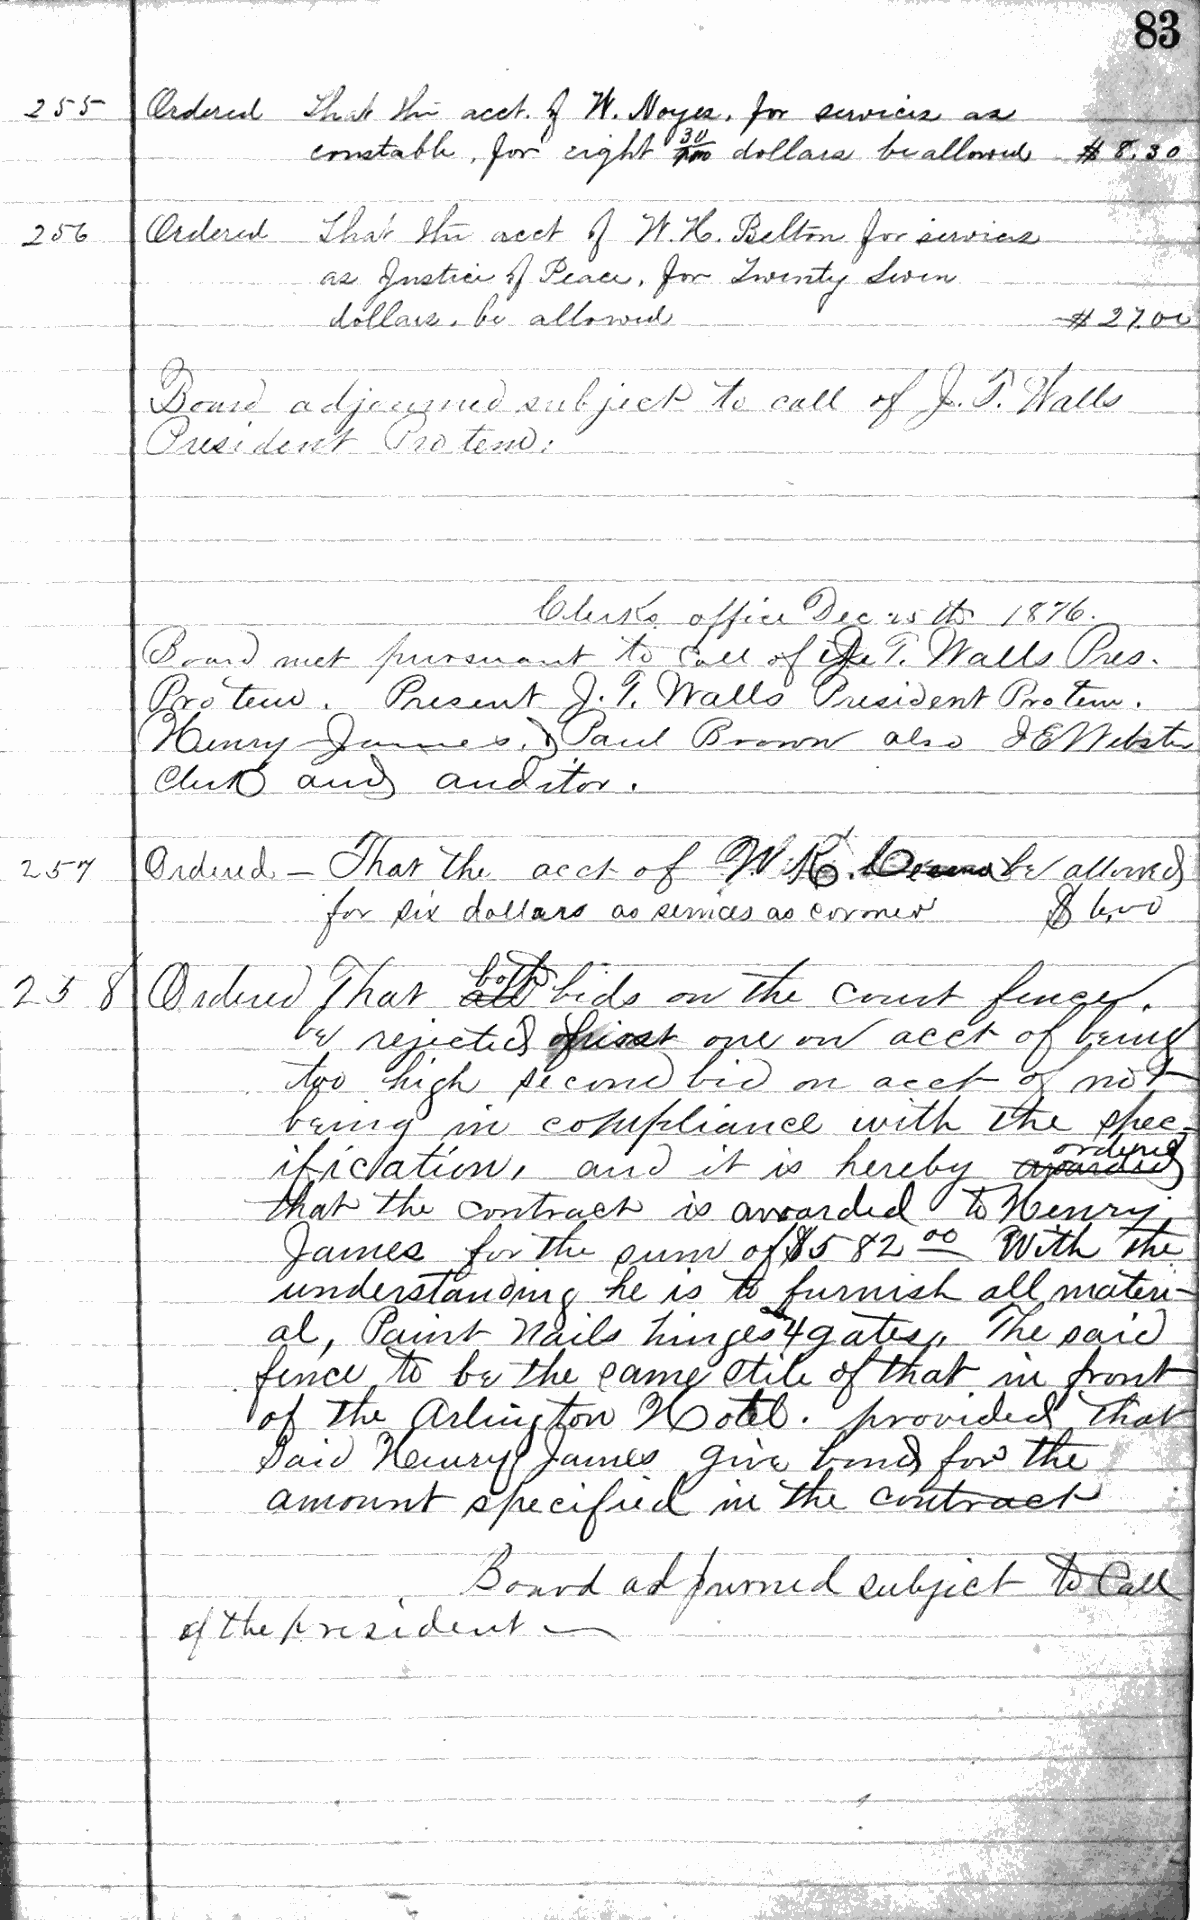 83
255 Ordered That the acct. of W. Noyes, for services as
constable, for eight 30/100 dollars be allowed $ 8.30
256 Ordered That the acct of W. H. Belton for services
as Justice of Peace, for Twenty Seven
dollars, be allowed $ 27.00
Board adjourned subject to call of J. T. Walls
President Protem:
Clerks office Dec 25th 1876.
Board met pursuant to Call of J. T. Walls Pres.
Pro tem. Present J. T. Walls President Protem.
Henry James, Paul Brown also J E Webster
Clerk and auditor.
257 Ordered - That the acct of W. K. be allowed
for six dollars as services as corner $ 6.00
258 Ordered That both all bids on the court fence,
be rejected first one on acct of being
too high second bid on acct of not
being in compliance with the spec-
ification, and it is hereby ordered awarded
that the contract is awarded to Henry
James for the sum of $582 00 With the
understanding he is to furnish all materi-
al, Paint Nails hinges 4 gates, The said
fence to be the same stile of that in front
of the Arlington Hotel. provided that
Said Henry James give bond for the
amount specified in the contract
Board adjourned subject to Call
of the president